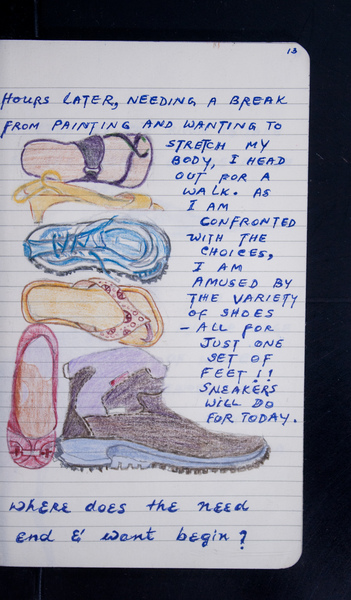 13
HOURS LATER, NEEDING A BREAK
FROM PAINTING AND WANTING TO
STRETCH MY
BODY, I HEAD
OUT FOR A
WALK. AS
I AM
CONFRONTED
WITH THE
CHOICES,
I AM
AMUSED BY
THE VARIETY
OF SHOES
– ALL FOR
JUST ONE
SET OF
FEET !!
SNEAKERS
WILL DO
FOR TODAY.
WHERE does the need
end & want begin?